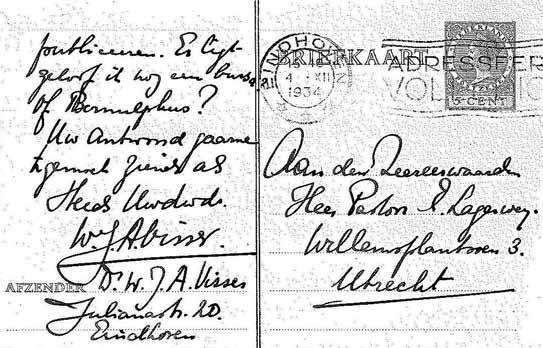 publiceeren. Er ligt
geloof ik nog een
of Bernulphus?
Uw antwoord gaarne
tegemoet ziende als
steeds Uwdwd.
W J A Visser.
AFZENDER Dr. W. J. A. Visser
Julianastr. 20.
Eindhoven
BRIEFKAART
EINDHOVEN
4 XII
1934
ADRESSEER
VOL
NEDERLAND
5 CENT
Aan den Zeereerwaarden
Heer Pastoor E. Lagerwey.
Willemsplantsoen 3.
Utrecht